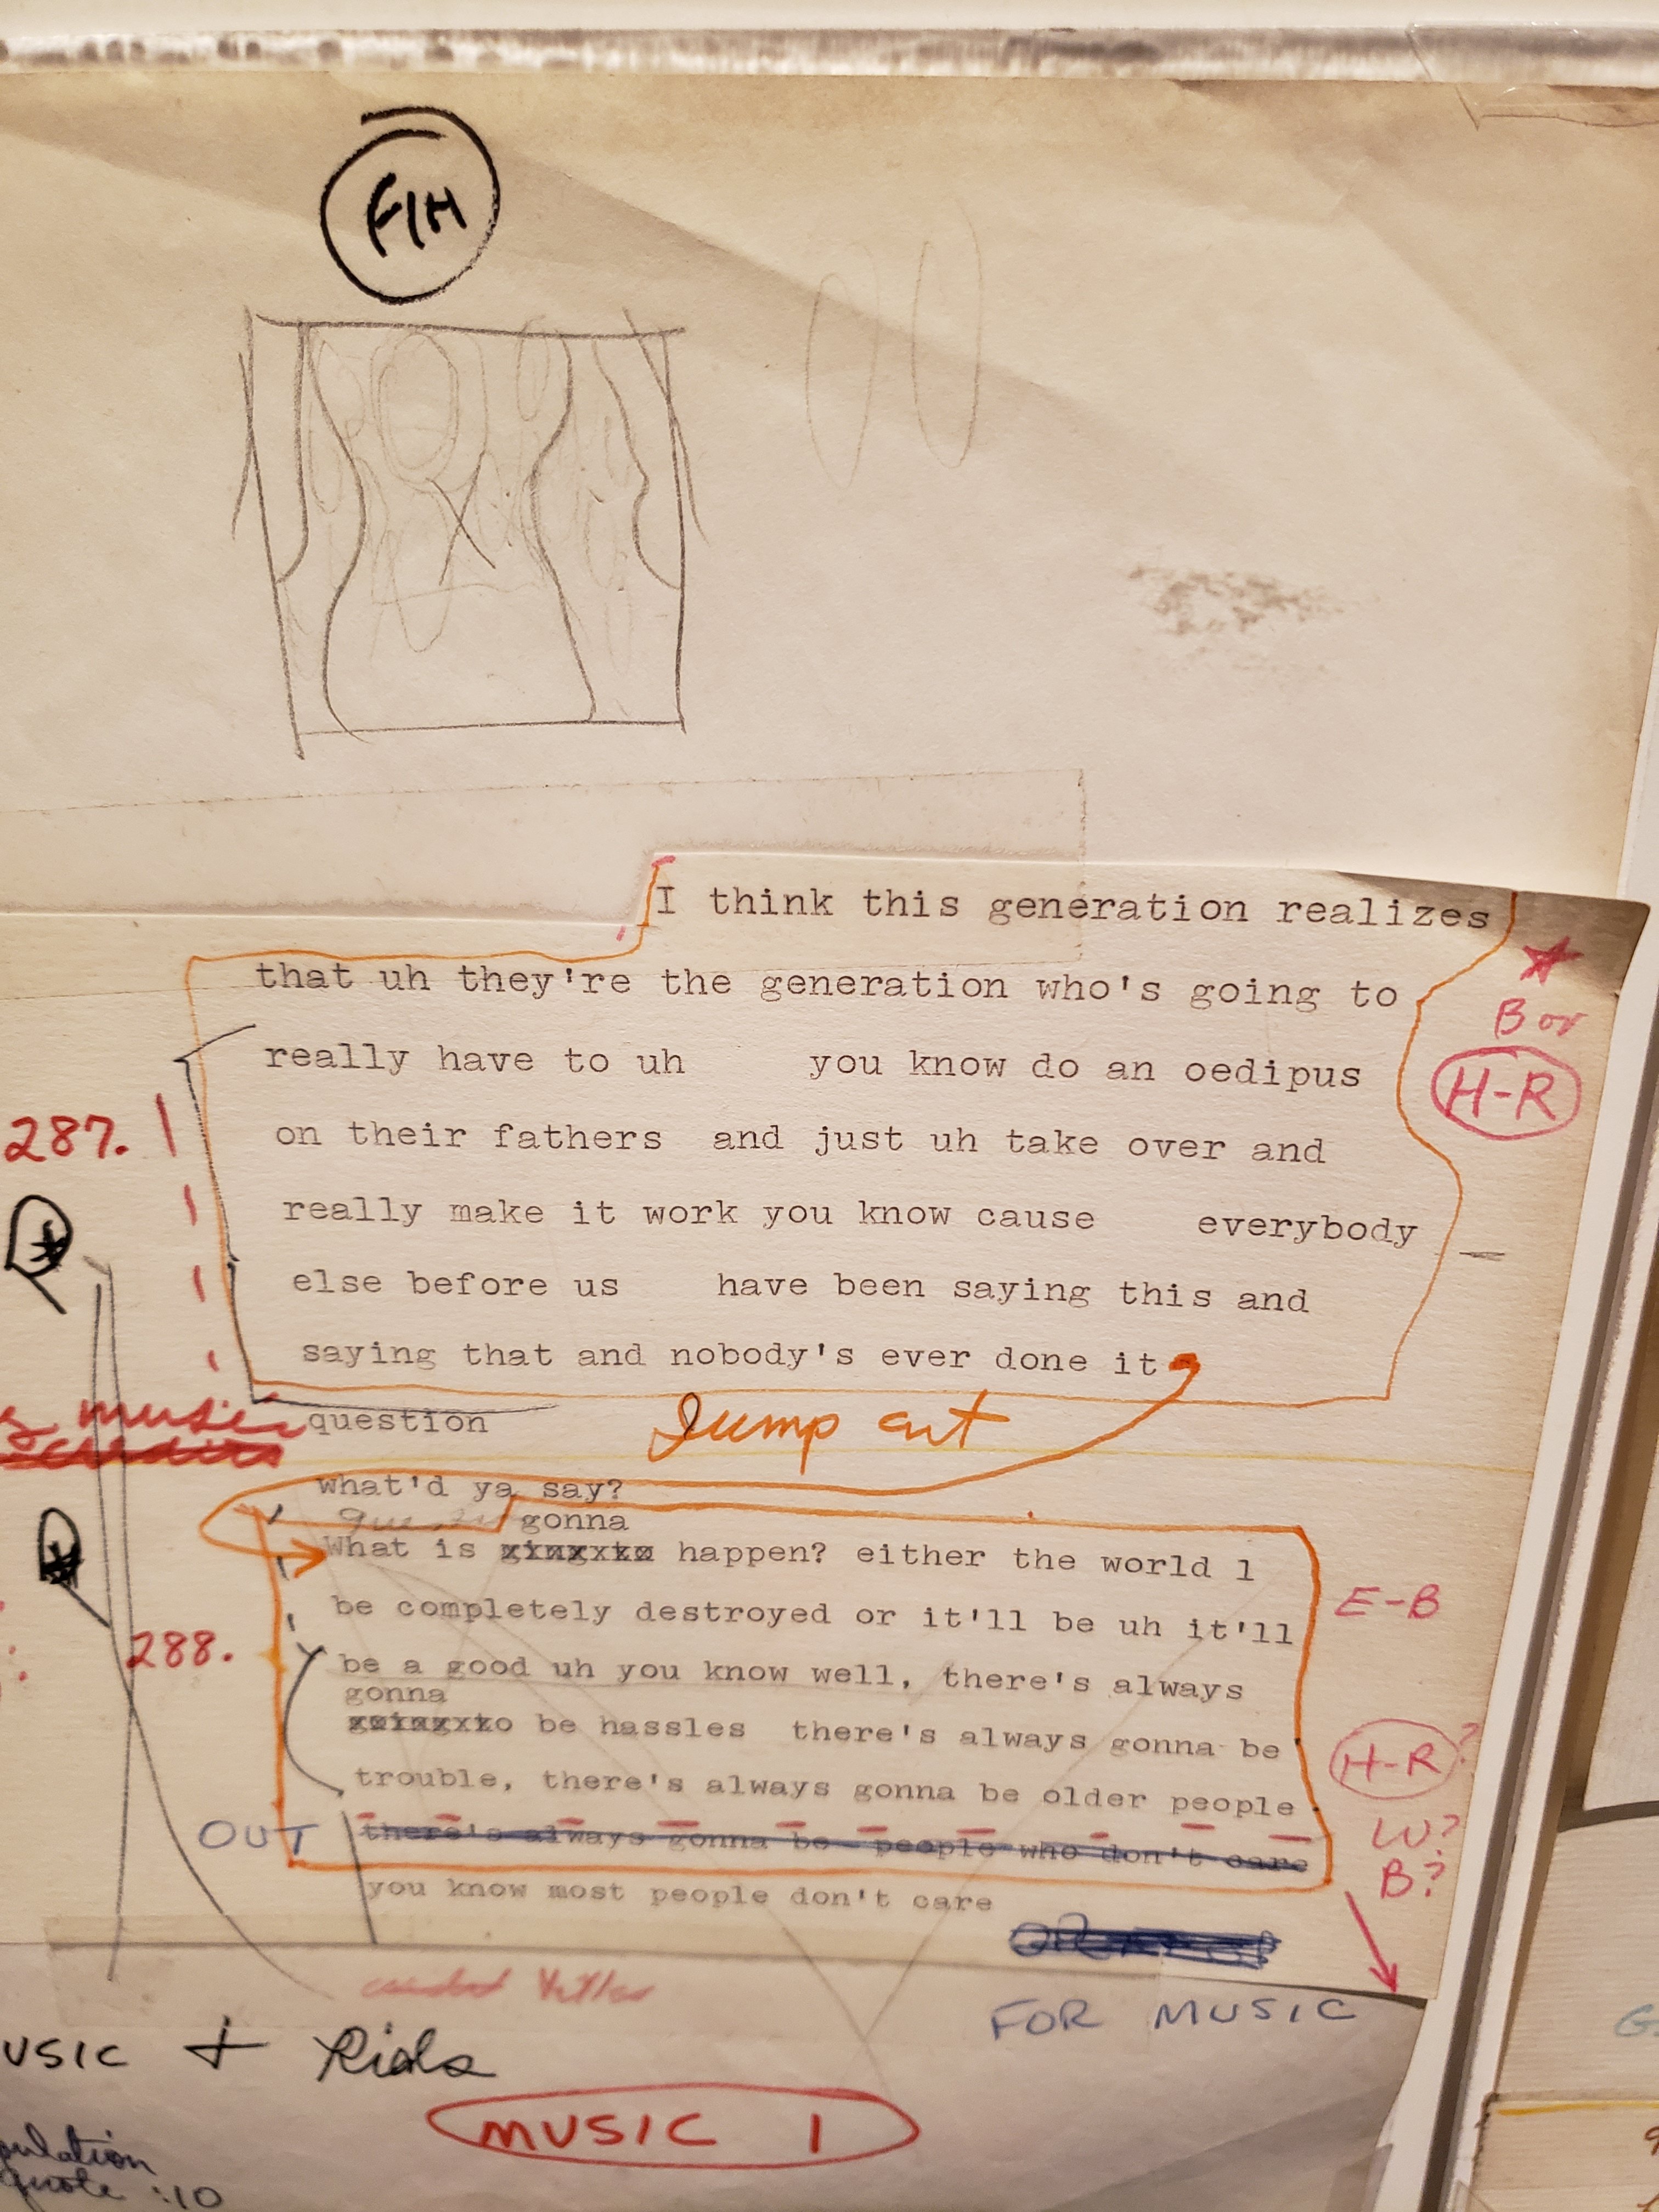 F/H
I think this generation realizes
that uh they're the generation who's going to
really have to uh you know do an oedipus
on their fathers and just uh take over and
really make it work you know cause everybody
else before us have been saying this and
saying that and nobody's ever done it
B or
H-R
287.
music
credits
question
Jump cut
what'd ya say?
gonna
What is happen? either the world l
be completely destroyed or it'll be uh it'll
be a good uh you know well, there's always
gonna
be hassles there's always gonna be
trouble, there's always gonna be older people
there's always gonna be people who don't care
you know most people don't care
288.
OUT
E-B
H-R?
W?
B?
FOR MUSIC
USIC + Kids
MUSIC 1
quote :10